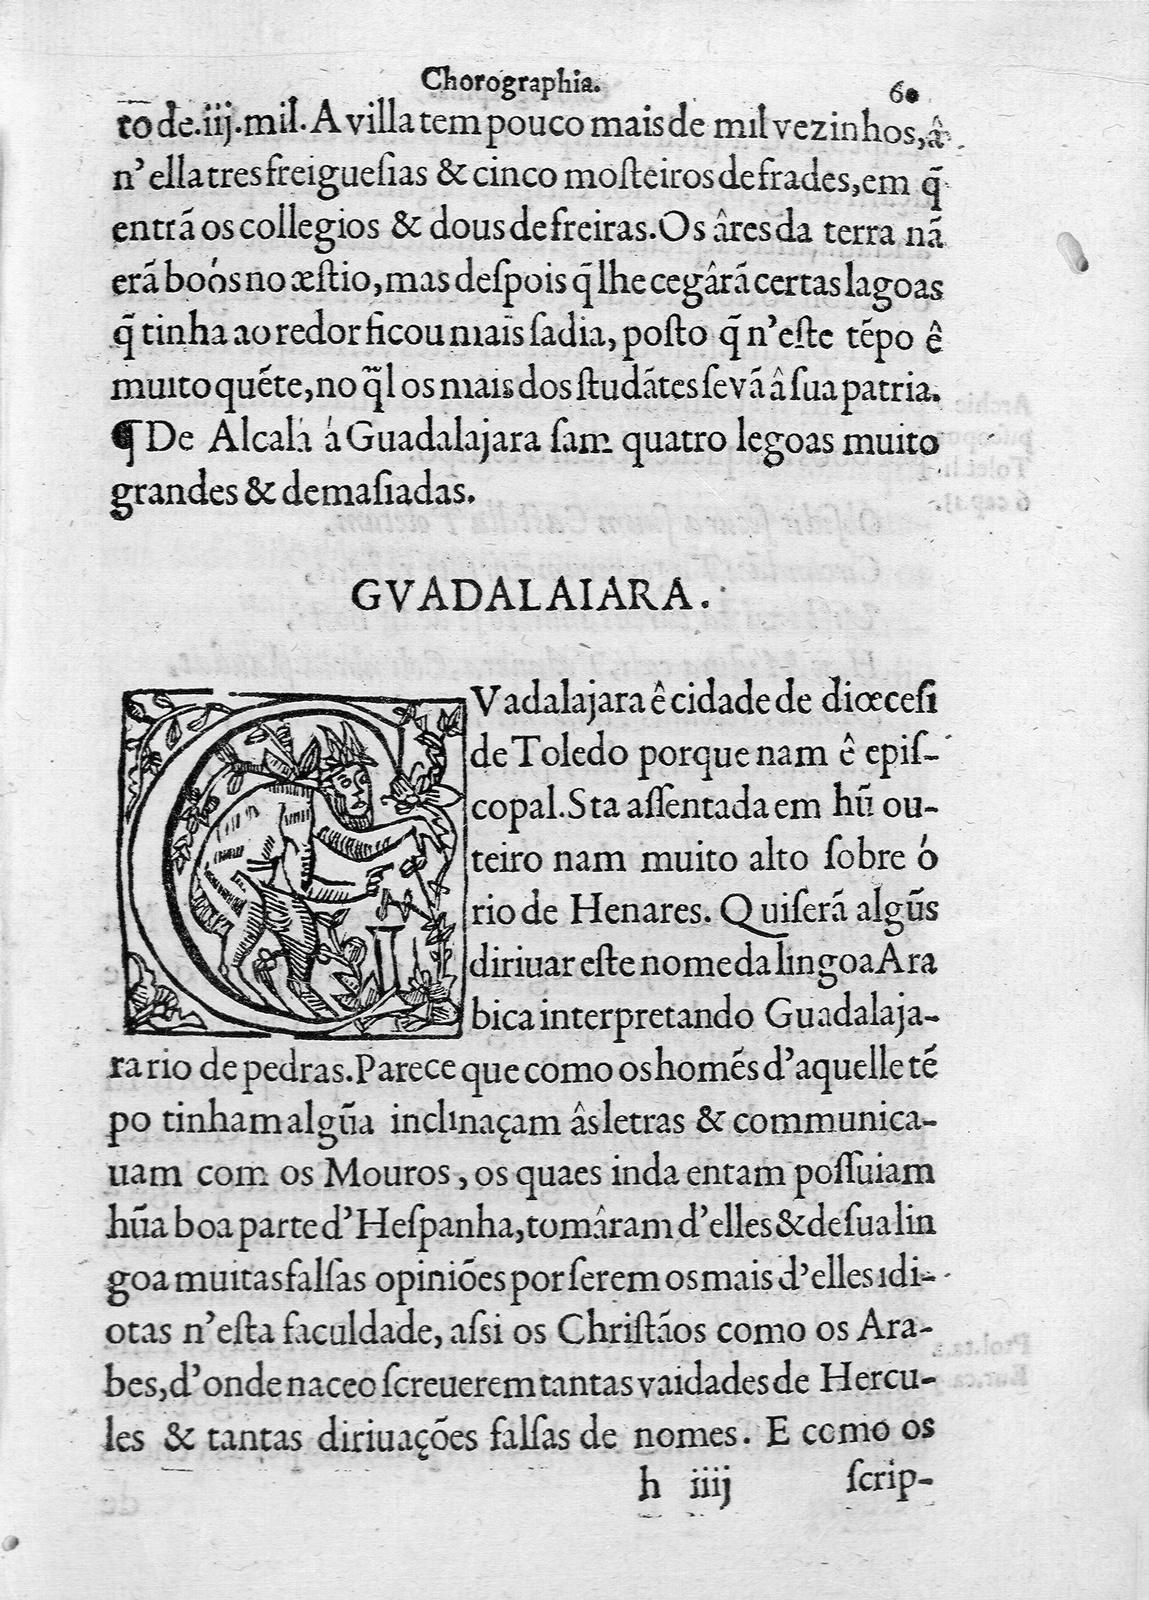 Chorographia. 60
to de.iij.mil. A villa tem pouco mais de mil vezinhos, â
n’ella tres freigueſias & cinco moſteiros de frades, em q̃
entrã os collegios & dous de freiras. Os âres da terra nã
erã boós no æſtio, mas deſpois q̃ lhe cegârã certas lagoas
q̃ tinha ao redor ficou mais ſadia, poſto q̃ n’eſte tẽpo ê
muito quẽte, no q̃l os mais dos ſtudãtes ſe vã â ſua patria.
¶ De Alcala á Guadalajara ſam quatro legoas muito
grandes & demaſiadas.
GVADALAIARA.
GVadalajara ê cidade de diœceſi
de Toledo porque nam ê epiſ-
copal. Sta aſſentada em hũ ou-
teiro nam muito alto ſobre ó
rio de Henares. Quiſerã algũs
diriuar eſte nome da lingoa Ara
bica interpretando Guadalaja-
ra rio de pedras. Parece que como os homẽs d’aquelle tẽ
po tinham algũa inclinaçam âs letras & communica-
uam com os Mouros, os quaes inda entam poſſuiam
hũa boa parte d’Heſpanha, tomâram d’elles & de ſua lin
goa muitas falſas opiniões por ſerem os mais d’elles idi-
otas n’eſta faculdade, aſsi os Chriſtãos como os Ara-
bes, d’onde naceo ſcreuerem tantas vaidades de Hercu-
les & tantas diriuações falſas de nomes. E como os
h iiij ſcrip-